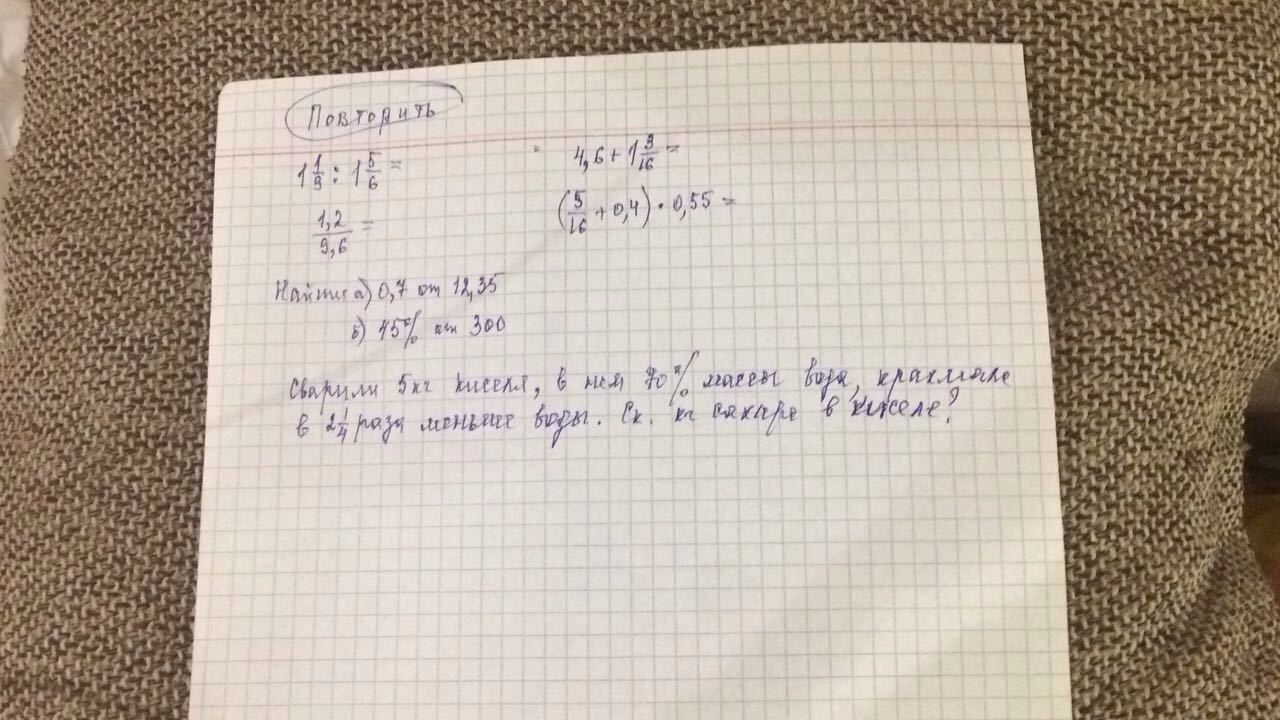 Повторить
1 1/9 : 1 5/6 =
4,6 + 1 3/16 =
1,2/9,6 =
(5/16 + 0,4) · 0,55 =
Найти а) 0,7 от 12,35
б) 45% от 300
Сварили 5кг киселя, в нем 70% массы вода, крахмала
в 2 1/4 раза меньше воды. Ск. кг сахара в киселе?